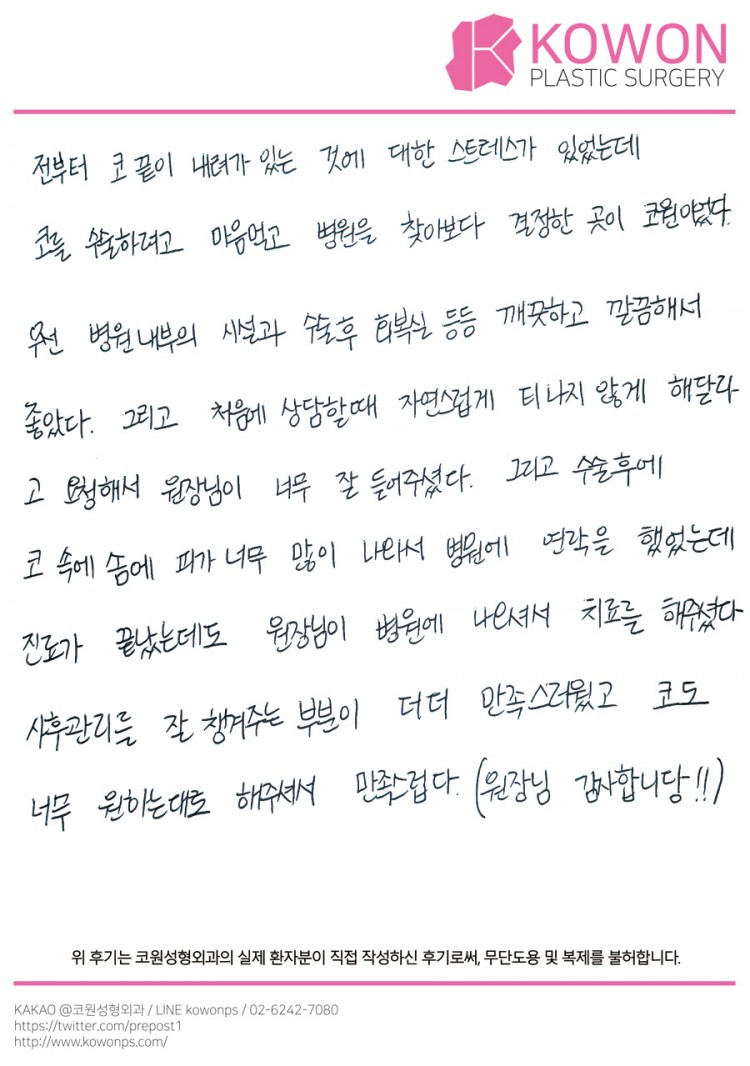 KOWON
PLASTIC SURGERY
전부터 코 끝이 내려가 있는 것에 대한 스트레스가 있었는데
코를 수술하려고 마음먹고 병원을 찾아보다 결정한 곳이 코원이었다.
우선 병원 내부의 시설과 수술 후 회복실 등등 깨끗하고 깔끔해서
좋았다. 그리고 처음에 상담할때 자연스럽게 티나지 않게 해달라
고 요청해서 원장님이 너무 잘 들어주셨다. 그리고 수술후에
코 속에 솜에 피가 너무 많이 나와서 병원에 연락을 했었는데
진료가 끝났는데도 원장님이 병원에 나오셔서 치료를 해주셨다
사후관리를 잘 챙겨주는 부분이 더더 만족스러웠고 코도
너무 원하는대로 해주셔서 만족스럽다. (원장님 감사합니당!!)
위 후기는 코원성형외과의 실제 환자분이 직접 작성하신 후기로써, 무단도용 및 복제를 불허합니다.
KAKAO @코원성형외과 / LINE kowonps / 02-6242-7080
https://twitter.com/prepost1
http://www.kowonps.com/